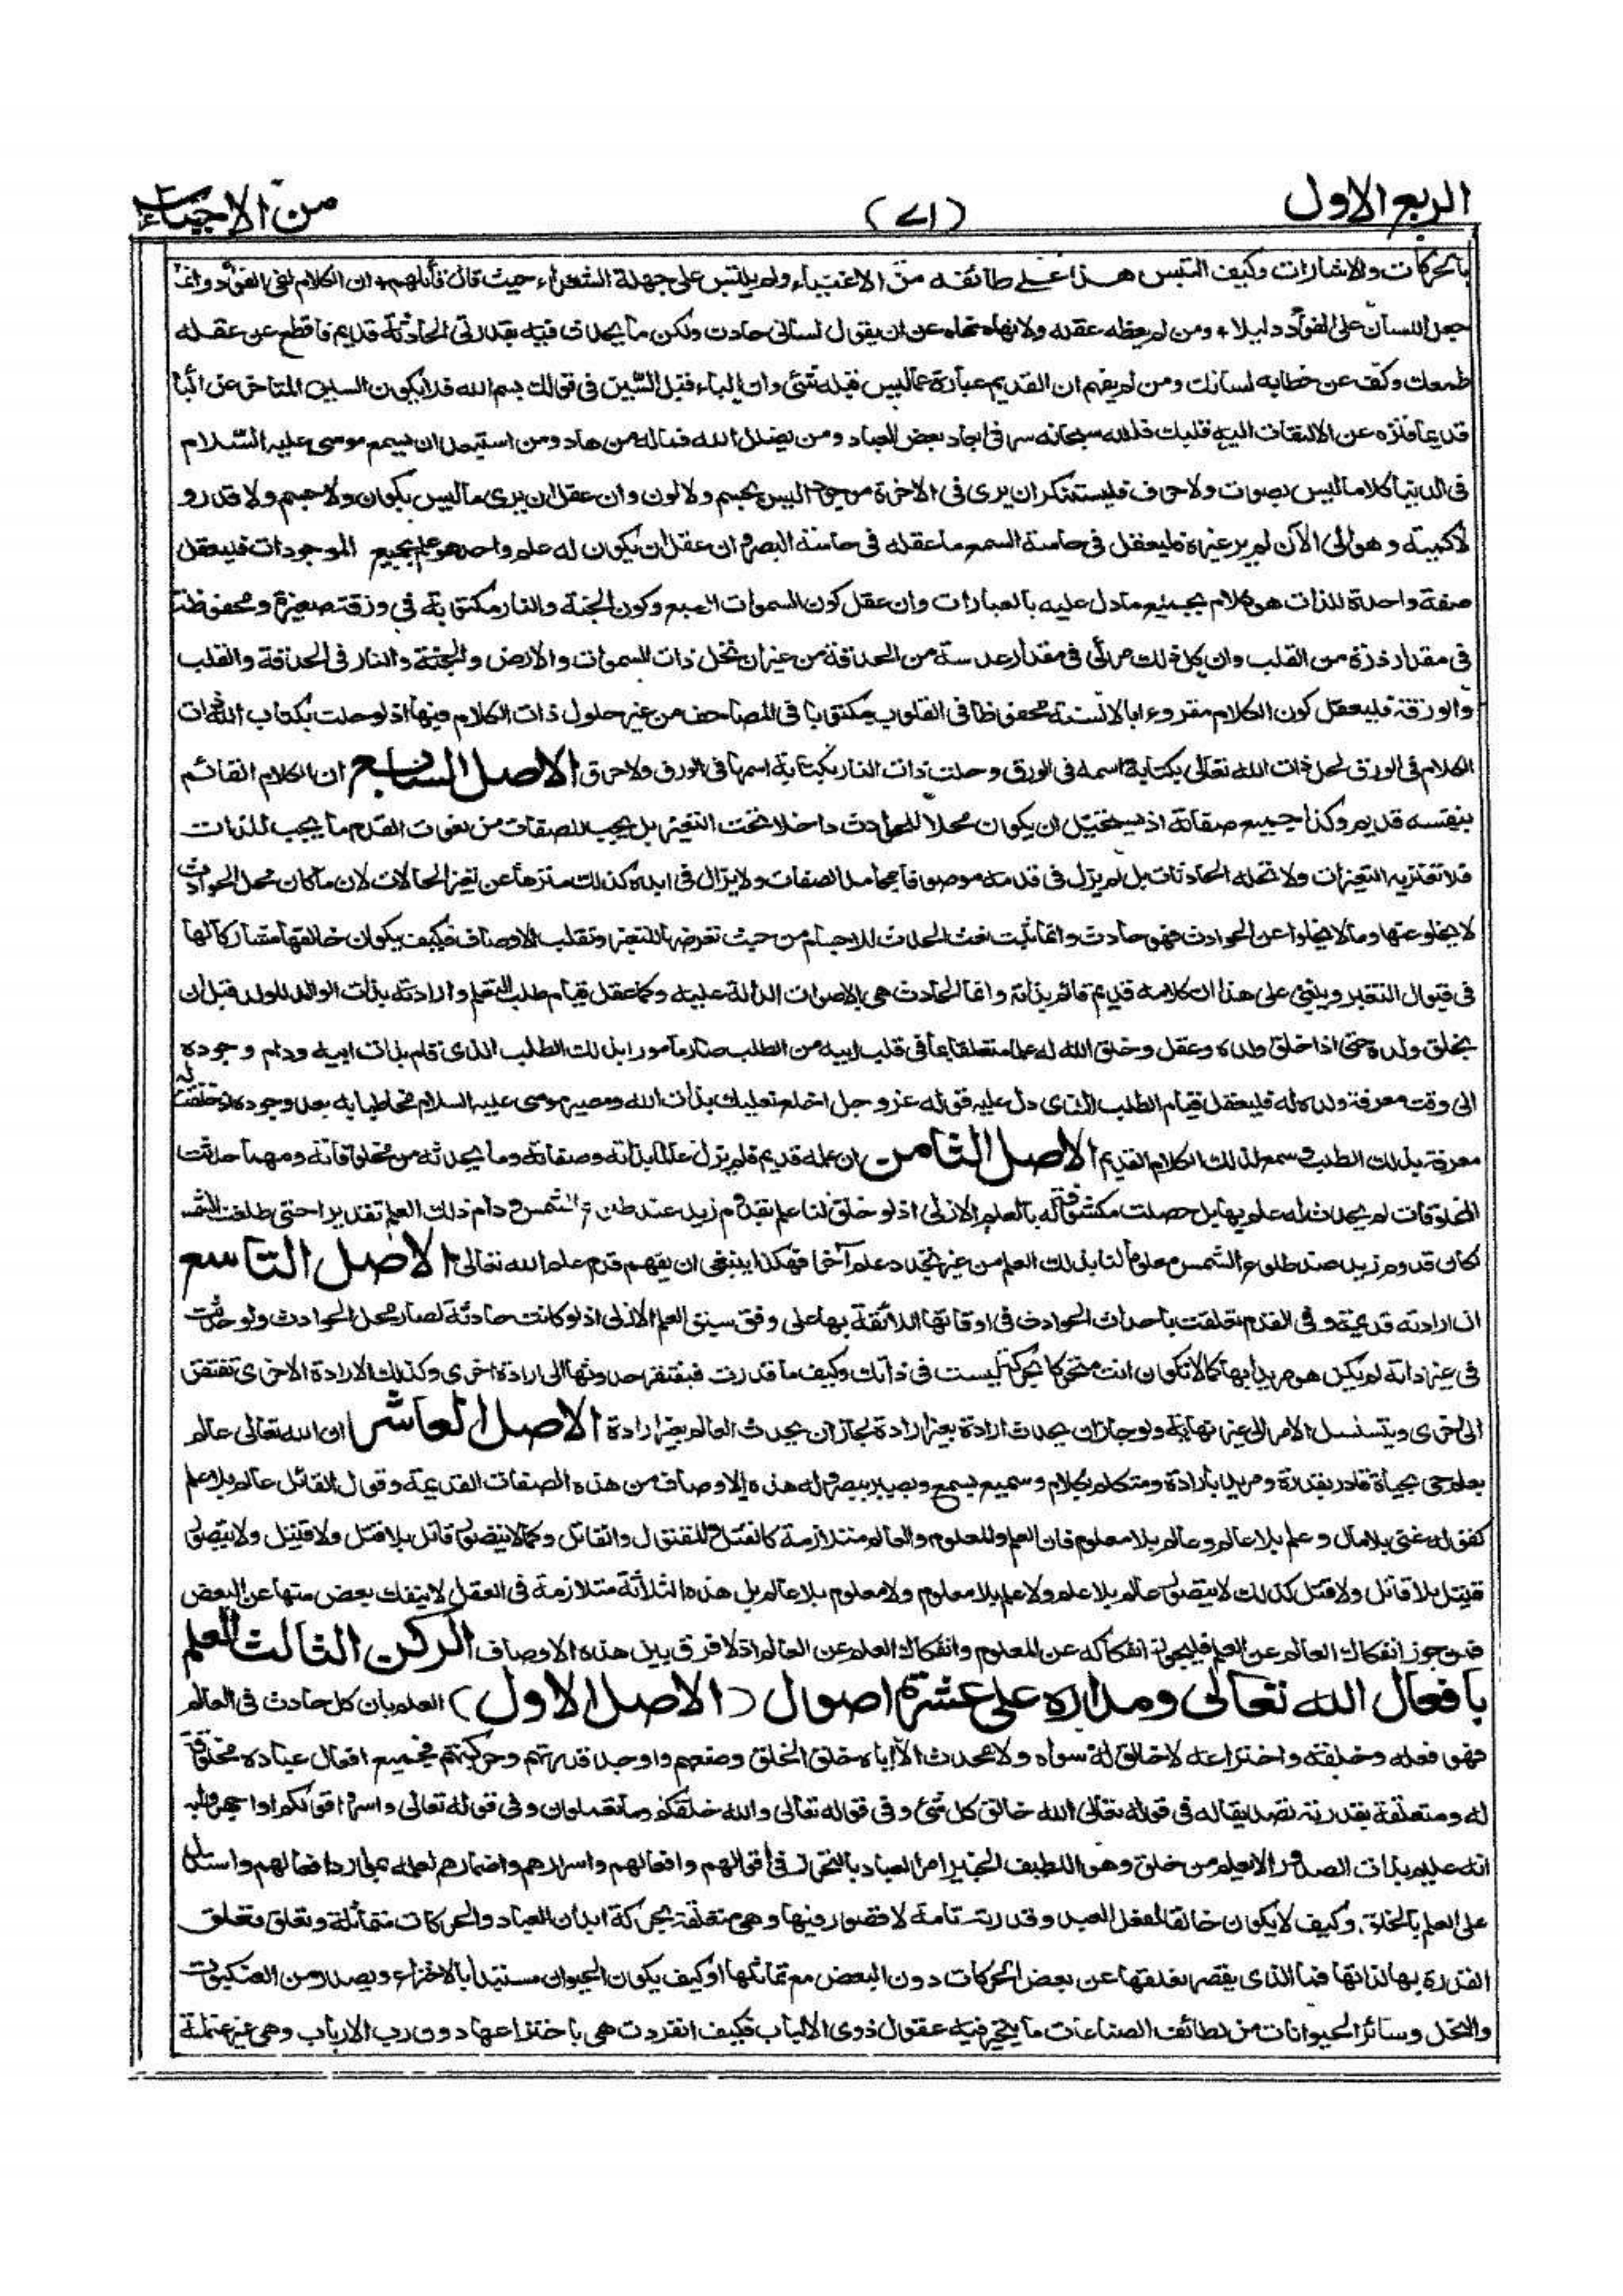 الربع الاول
(٧١)
من الاحياء
بالحركات والاشارات وكيف التبس هذا على طائفة من الاغبياء ولم يلتبس على جهلة الشعراء حيث قال قائلهم ان الكلام لفى الفؤاد وانما
جعل اللسان على الفؤاد دليلا ومن لم يعظه عقله ولا نهاه نهاه عن ان يقول لسانى حادث ولكن ما يحدث فيه بقدرتى الحادثة قديم فاقطع عن عقله
طمعك وكف عن خطابه لسانك ومن لم يفهم ان القديم عبارة عما ليس قبله شئ وان الباء قبل السين فى قولك بسم الله فلا يكون السين المتاخر عن البا
قديما فنزه عن الالتفات اليه قلبك فلله سبحانه سر فى ابعاد بعض العباد ومن يضلل الله فما له من هاد ومن استبعد ان يسمع موسى عليه السلام
فى الدنيا كلاما ليس بصوت ولا حرف فليستنكر ان يرى فى الاخرة موجود اليس بجسم ولا لون وان عقل ان يرى ما ليس بلون ولا جسم ولا قدر و
لا كمية وهو الى الآن لم ير غيره فليعقل فى حاسة السمع ما عقله فى حاسة البصر وان عقل ان يكون له علم واحد هو علم بجميع الموجودات فليعقل
صفة واحدة للذات هو كلام بجميع ما دل عليه بالعبارات وان عقل كون السموات السبع وكون الجنة والنار مكتوبة فى ورقة صغيرة ومحفوظة
فى مقدار ذرة من القلب وان كل ذلك مرئى فى مقدار عدسة من الحدقة من غيران تحل ذات السموات والارض والجنة والنار فى الحدقة والقلب
والورقة فليعقل كون الكلام مقروءا بالالسنة محفوظا فى القلوب مكتوبا فى المصاحف من غير حلول ذات الكلام فيها اذ لو حلت بكتاب الله ذات
الكلام فى الورق لحل ذات الله تعالى بكتابة اسمه فى الورق وحلت ذات النار بكتابة اسمها فى الورق ولاحرق الاصل السابع ان الكلام القائم
بنفسه قديم وكذا جميع صفاته اذ يستحيل ان يكون محلا للحوادث داخلا تحت التغير بل يجب للصفات من نعوت القدم ما يجب للذات
فلا تعتريه التغيرات ولا تحله الحادثات بل لم يزل فى قدمه موصوفا بمحامد الصفات ولا يزال فى ابده كذلك منزها عن تغير الحالات لان ما كان محل الحوادث
لا يخلو عنها وما لا يخلوا عن الحوادث فهو حادث وانما ثبت نعت الحدث للاجسام من حيث تعرضها للتغير وتقلب الاوصاف فكيف يكون خالقها مشاركا لها
فى قبول التغير وينبنى على هذا ان كلامه قديم قائم بذاته وانما الحادث هى الاصوات الدالة عليه وكما عقل قيام طلب التعلم وارادته بذات الوالد للولد قبل ان
يخلق ولده حتى اذا خلق ولده وعقل وخلق الله له علما متعلقا بما فى قلب ابيه من الطلب صار مامورا بذلك الطلب الذى قام بذات ابيه ودام وجوده
الى وقت معرفة ولده له فليعقل قيام الطلب الذى دل عليه قوله عز وجل اخلع نعليك بذات الله ومصير موسى عليه السلام مخاطبا به بعد وجوده اذ خلقت له
معرفة بذلك الطلب وسمع لذلك الكلام القديم الاصل الثامن ان علمه قديم فلم يزل عالما بذاته وصفاته وما يحدثه من مخلوقاته ومهما حدثت
المخلوقات لم يحدث له علم بها بل حصلت مكشوفة له بالعلم الازلى اذ لو خلق لنا علم بقدوم زيد عند طلوع الشمس ودام ذلك العلم تقديرا حتى طلعت الشمس
لكان قدوم زيد عند طلوع الشمس معلوما لنا بذلك العلم من غير تجدد علم آخر فهكذا ينبغى ان يفهم قدم علم الله تعالى الاصل التاسع
ان ارادته قديمة وفى القدم تعلقت باحداث الحوادث فى اوقاتها اللائقة بها على وفق سبق العلم الازلى اذ لو كانت حادثة لصار محل الحوادث ولو حدثت
فى غير ذاته لم يكن هو مريدا بها كما لا تكون انت متحركا بحركة ليست فى ذاتك وكيف ما قدرت فيفتقر حدوثها الى ارادة اخرى وكذلك الارادة الاخرى تفتقر
الى اخرى ويتسلسل الامر الى غير نهاية ولو جاز ان يحدث ارادة بغير ارادة لجاز ان يحدث العالم بغير ارادة الاصل العاشر ان الله تعالى عالم
بعلم حى بحياة قادر بقدرة ومريد بارادة ومتكلم بكلام وسميع بسمع وبصير ببصر وله هذه الاوصاف من هذه الصفات القديمة وقول القائل عالم بلا علم
كقوله غنى بلا مال وعلم بلا عالم وعالم بلا معلوم فان العلم والمعلوم والعالم متلازمة كالقتل والمقتول والقاتل وكما لا يتصور قاتل بلا قتل ولا قتيل ولا يتصور
قتيل بلا قاتل ولا قتل كذلك لا يتصور عالم بلا علم ولا علم بلا معلوم ولا معلوم بلا عالم بل هذه الثلاثة متلازمة فى العقل لا ينفك بعض منها عن البعض
فمن جوز انفكاك العالم عن العلم فليجوز انفكاكه عن المعلوم وانفكاك العلم عن العالم اذ لا فرق بين هذه الاوصاف الركن الثالث العلم
بافعال الله تعالى ومداره على عشرة اصول (الاصل الاول) العلم بان كل حادث فى العالم
فهو فعله وخلقه واختراعه لا خالق له سواه ولا محدث الا اياه خلق الخلق وصنعهم واوجد قدرتهم وحركتهم فجميع افعال عباده مخلوقة
له ومتعلقة بقدرته تصديقا له فى قوله تعالى الله خالق كل شئ وفى قوله تعالى والله خلقكم وما تعملون وفى قوله تعالى واسروا قولكم او اجهروا به
انه عليم بذات الصدور الا يعلم من خلق وهو اللطيف الخبير امر العباد بالتحرز فى اقوالهم وافعالهم واسرارهم واضمارهم لعلمه بموارد افعالهم واستدل
على العلم بالخلق، وكيف لا يكون خالقا لفعل العبد وقدرته تامة لا قصور فيها وهى متعلقة بحركة ابدان العباد والحركات متماثلة وتعلق
القدرة بها لذاتها فما الذى يقصر تعلقها عن بعض الحركات دون البعض مع تماثلها او كيف يكون الحيوان مستبدا بالاختراع ويصدر من العنكبوت
والنحل وسائر الحيوانات من لطائف الصناعات ما يتحير فيه عقول ذوى الالباب فكيف انفردت هى باختراعها دون رب الارباب وهى غير عالمة